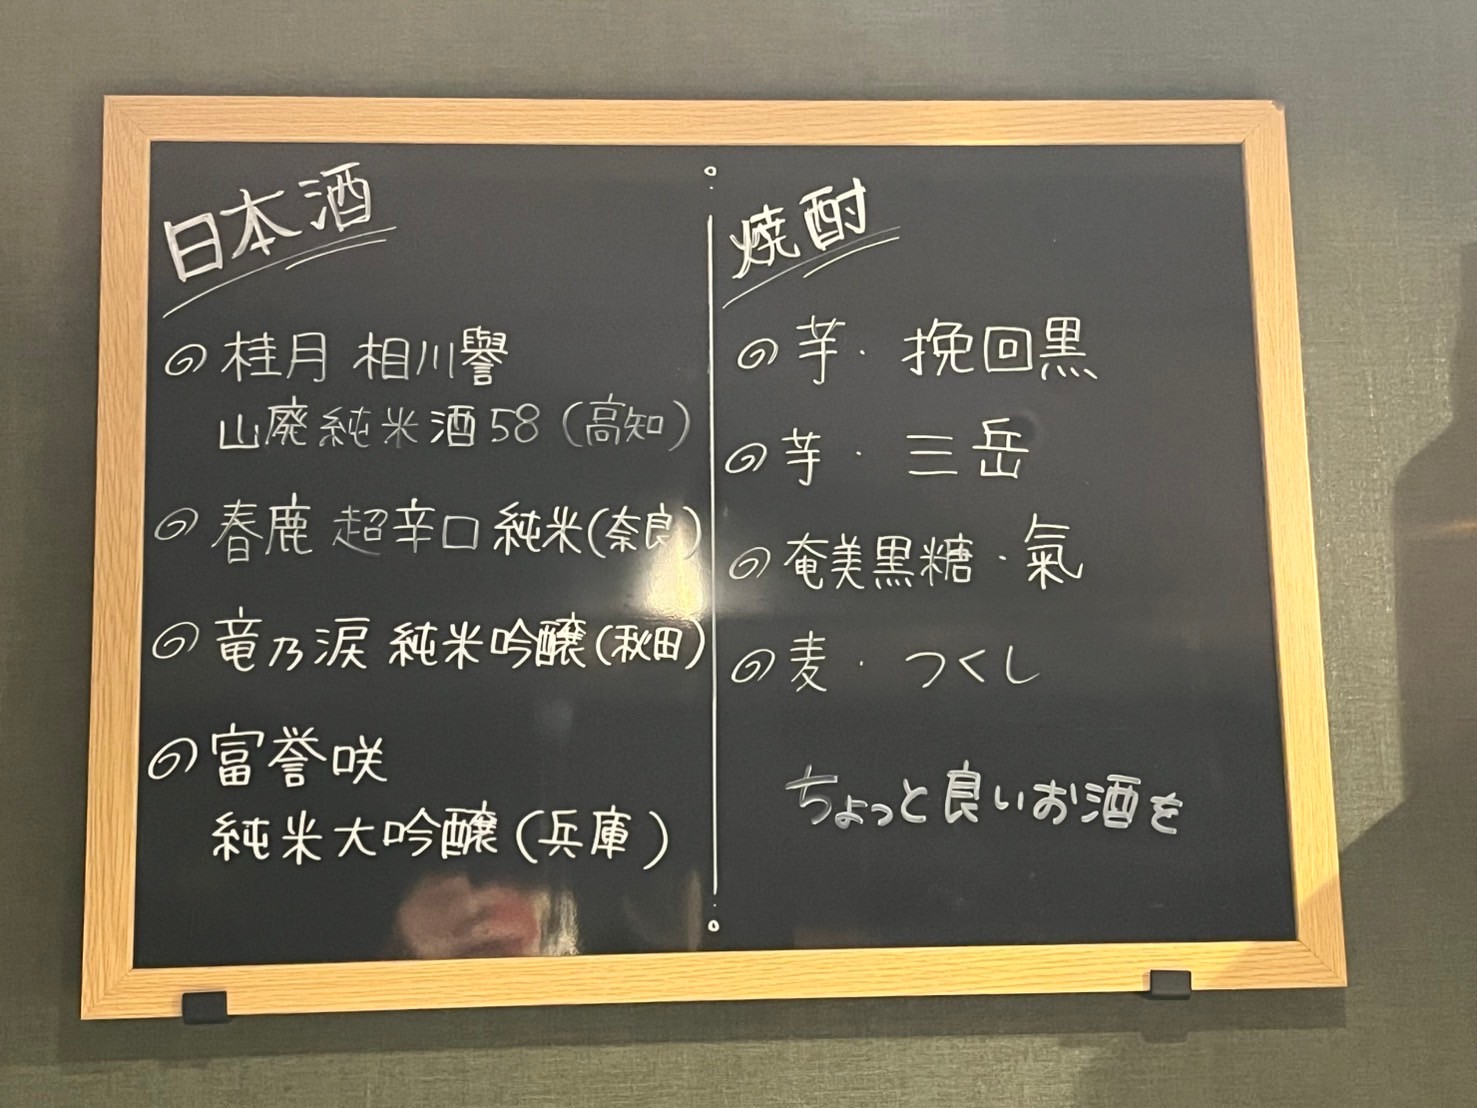 日本酒
桂月 相川譽
山廃純米酒58(高知)
春鹿 超辛口純米(奈良)
竜乃涙 純米吟醸(秋田)
富誉咲
純米大吟醸(兵庫)
焼酎
芋・挽回黒
芋・三岳
奄美黒糖・氣
麦・つくし
ちょっと良いお酒を